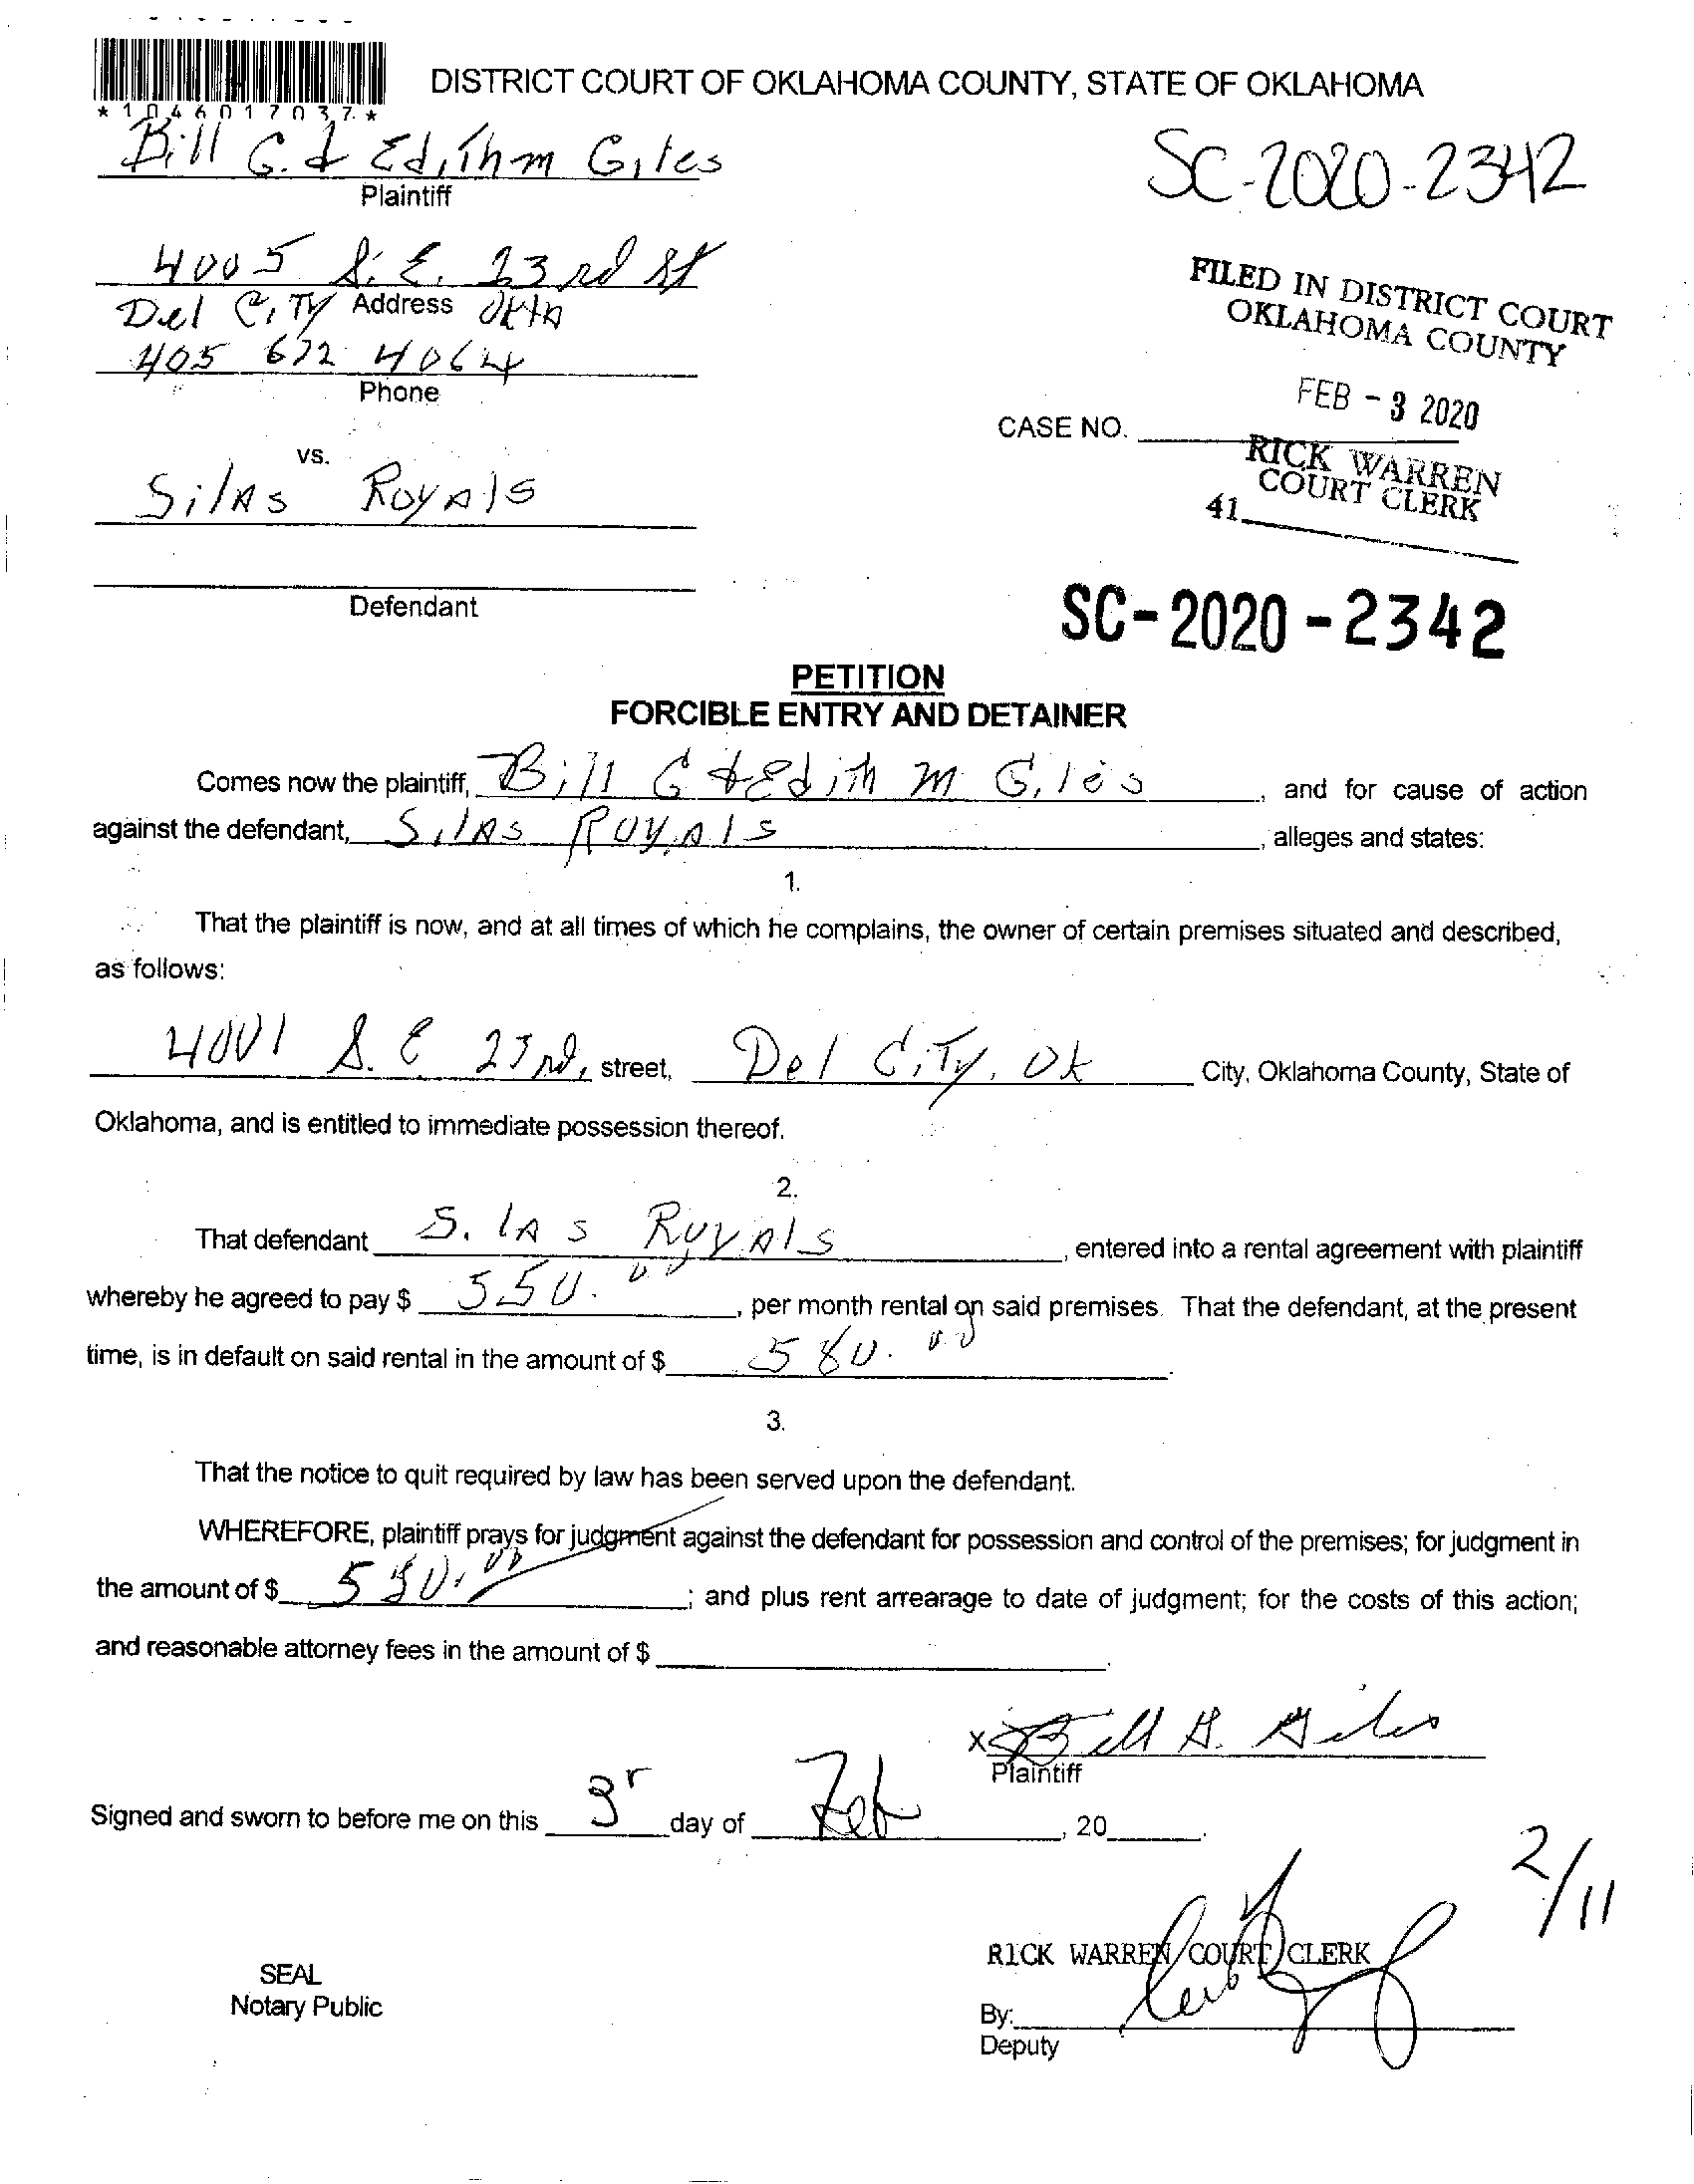 *1046017037*
DISTRICT COURT OF OKLAHOMA COUNTY, STATE OF OKLAHOMA
Bill G. & Edith m Giles
Plaintiff
SC-2020-2342
4005 S. E. 23rd St
Del City Address Okla
405 672 4064
Phone
FILED IN DISTRICT COURT
OKLAHOMA COUNTY
FEB - 3 2020
CASE NO.
RICK WARREN
COURT CLERK
41
vs.
Silas Royals
Defendant
SC-2020-2342
PETITION
FORCIBLE ENTRY AND DETAINER
Comes now the plaintiff, Bill G & Edith m Giles, and for cause of action
against the defendant, Silas Royals, alleges and states:
1.
That the plaintiff is now, and at all times of which he complains, the owner of certain premises situated and described,
as follows:
4001 S. E 23rd, street, Del City, Ok City, Oklahoma County, State of
Oklahoma, and is entitled to immediate possession thereof.
2.
That defendant Silas Royals, entered into a rental agreement with plaintiff
whereby he agreed to pay $ 550.00, per month rental on said premises. That the defendant, at the present
time, is in default on said rental in the amount of $ 580.00.
3.
That the notice to quit required by law has been served upon the defendant.
WHEREFORE, plaintiff prays for judgment against the defendant for possession and control of the premises; for judgment in
the amount of $ 580.00; and plus rent arrearage to date of judgment; for the costs of this action;
and reasonable attorney fees in the amount of $
x Bill G. Giles
Plaintiff
Signed and sworn to before me on this 3r day of Feb, 20.
2/11
RICK WARREN COURT CLERK
SEAL
Notary Public
By:
Deputy